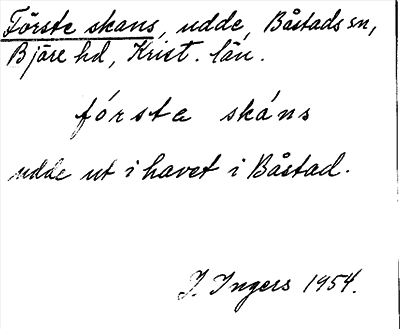 Förste skans, udde, Båstads sn,
Bjäre hd, Krist. län.
fórste skáns
udde ut i havet i Båstad.
I. Ingers 1954.